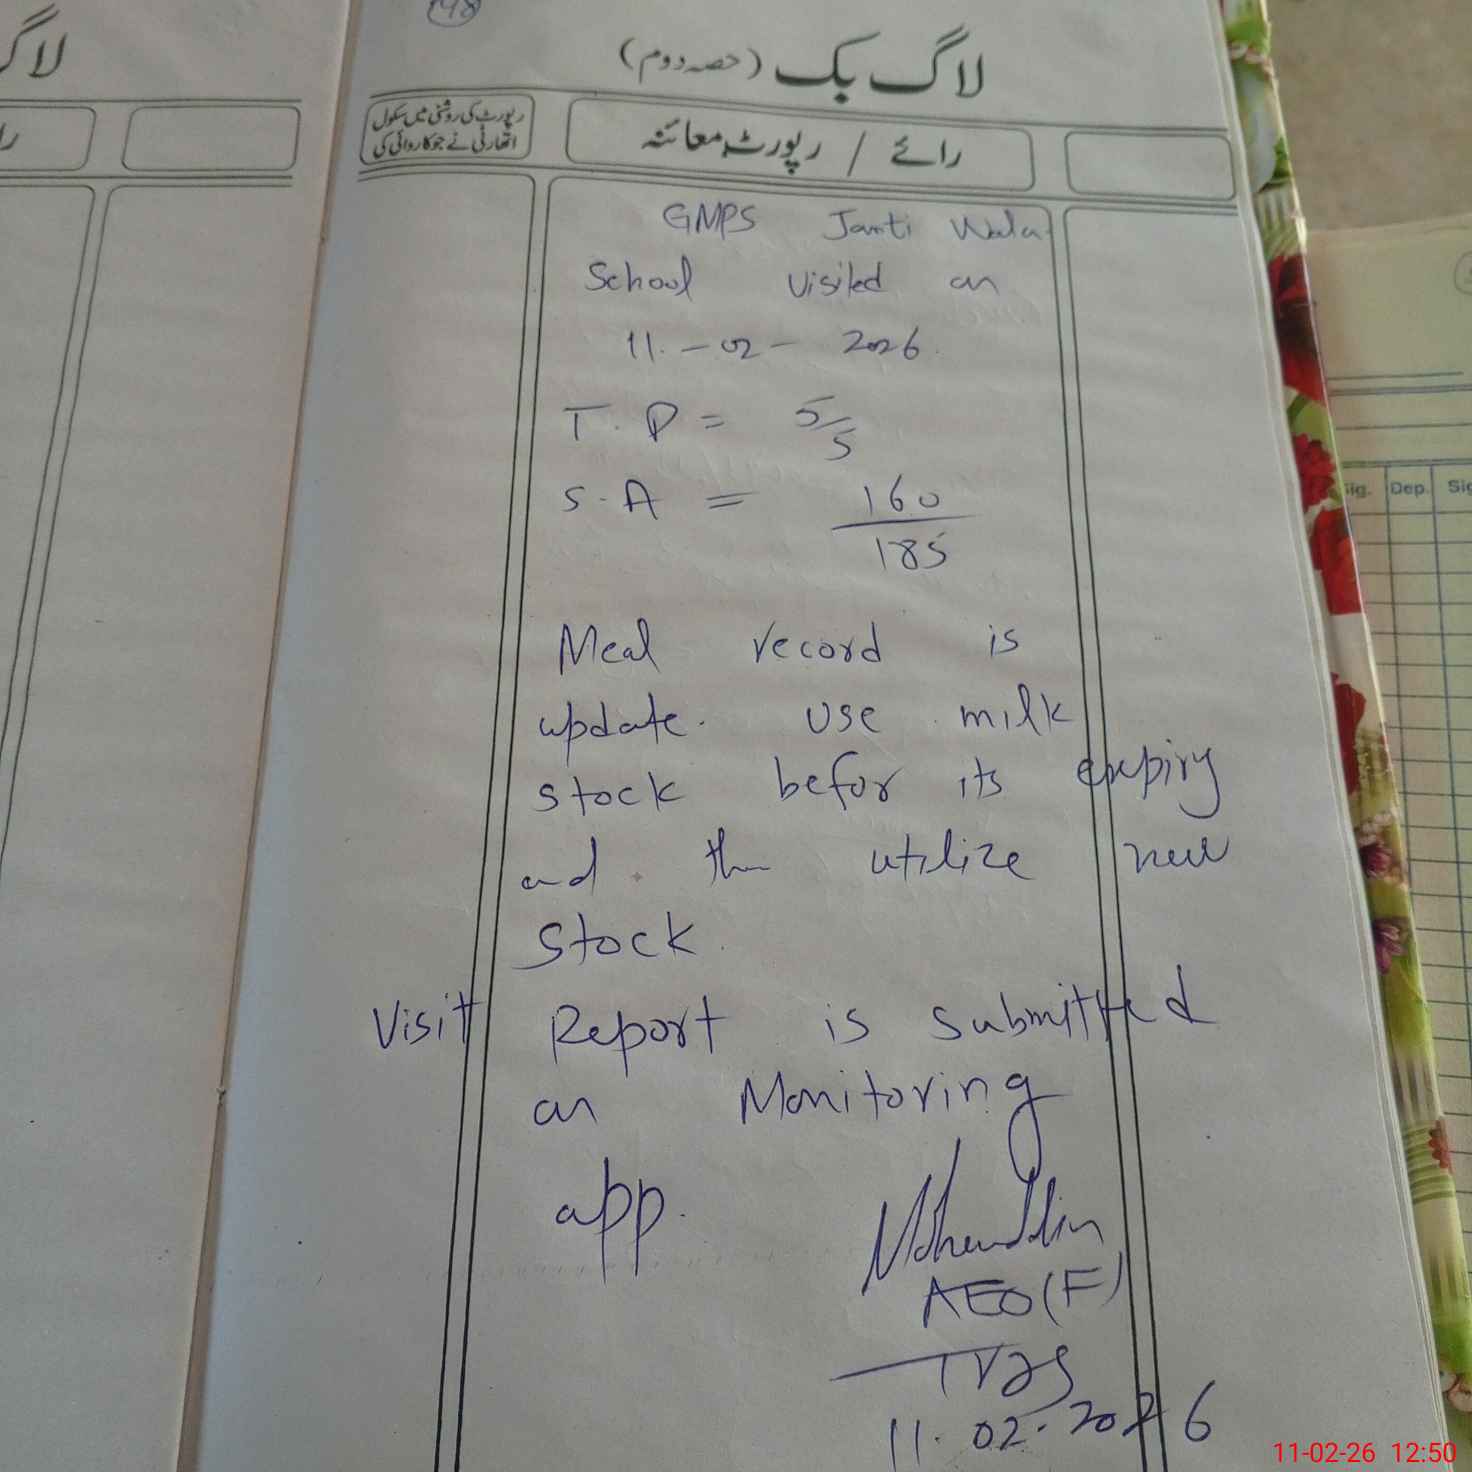 148
لاگ بک (حصہ دوم)
رپورٹ کی روشنی میں سکول
اتھارٹی نے جو کاروائی کی
رائے / رپورٹ معائنہ
GMPS Janti Wala
School Visited on
11 - 02 - 2026
T.P = 5/5
S.A = 160/185
Meal record is
update. Use milk
stock befor its expiry
and then utilize new
stock.
Visit Report is submitted
on Monitoring
app.
AEO (F)
11.02.2026
Sig. Dep. Sig
11-02-26 12:50